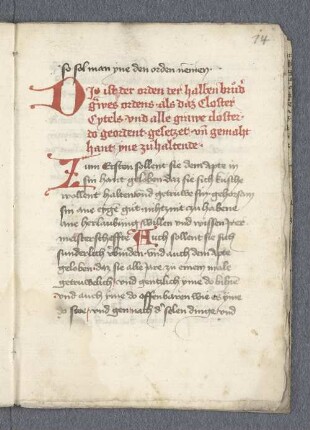 14
so sol man yne den orden nemen
Diß ist der orden der halben brud̾
gives ordens als daz Closter
Cytels vnd alle gmyne closter
do geordent gesetzet vn̄ gemaht
hant yne zu haltende
Zum Ersten sollent sie dem Apte in
sin hant geloben daz sie sich kusche
wollent halten vnd getruwe sin gehorsam
sin ane eygē gut nihtznit zu habene
ane herlaubung willen vnd wissen irer
meisterschefte Auch sollent sie sich
sunderlich v̾binden vnd auch dem Apte
geloben daz sie alle jare zu einem male
getruwelich vnd gentzlich yme do bihten
vnd auch yme do offenbaren wie es yme
do stee vnd gemacht d̾ selen dinge vnd